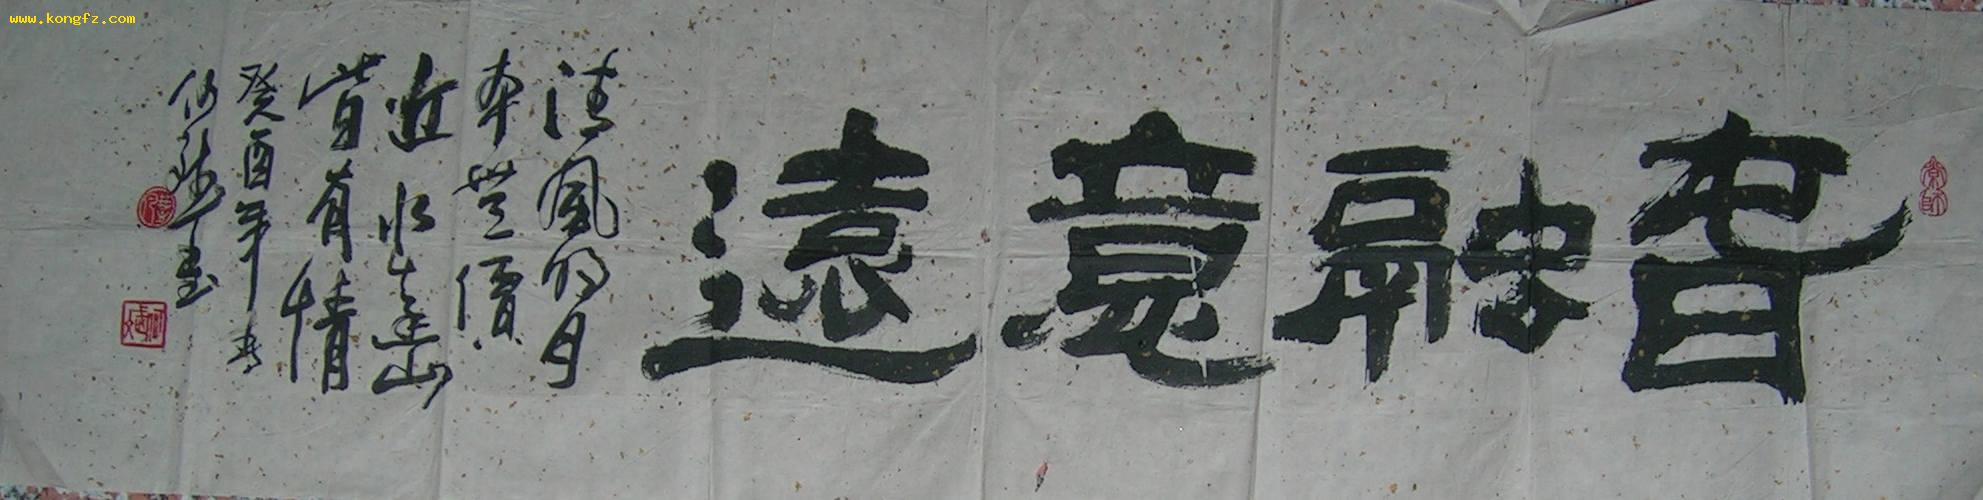 www.kongfz.com
旾融意遠
清風明月
本無價
近水遠山
皆有情
癸酉年春